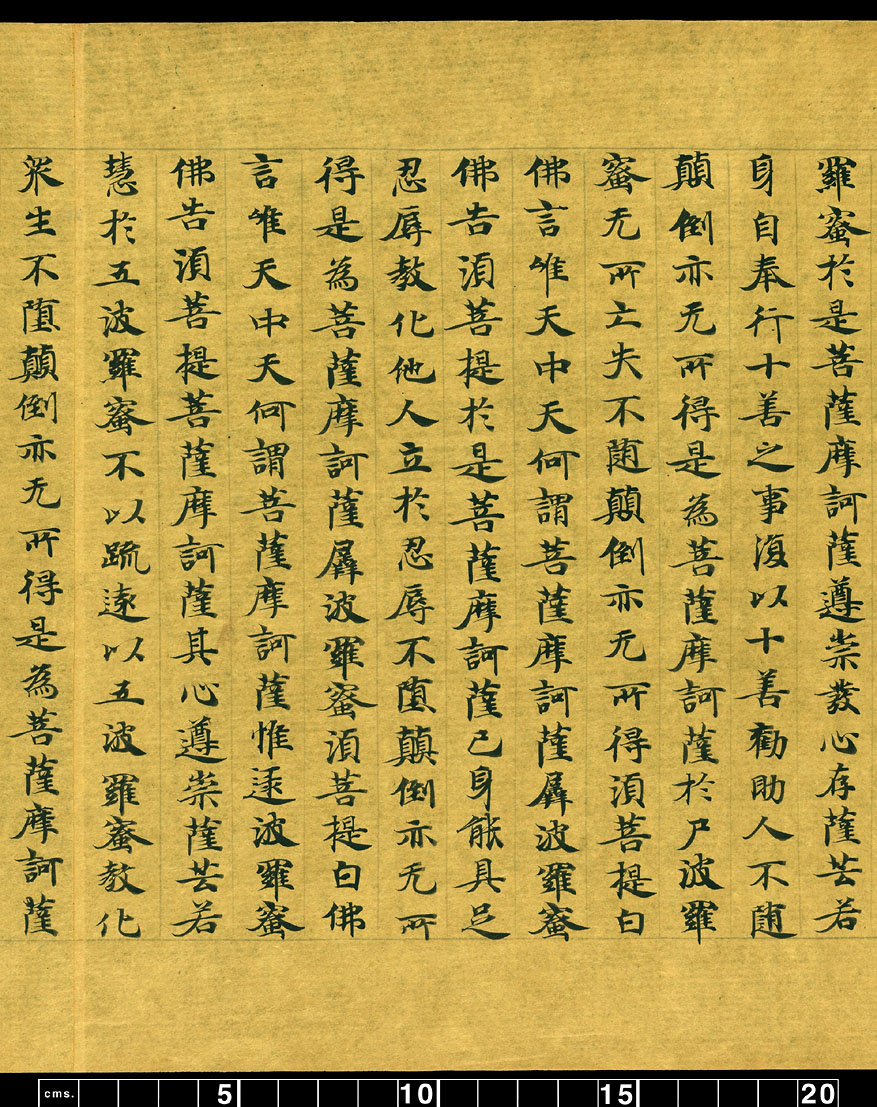 羅蜜於是菩薩摩訶薩遵崇發心存薩芸若
身自奉行十善之事復以十善勸助人不隨
顛倒亦无所得是為菩薩摩訶薩於尸波羅
蜜无所立失不隨顛倒亦无所得須菩提白
佛言唯天中天何謂菩薩摩訶薩羼波羅蜜
佛告須菩提於是菩薩摩訶薩己身能具足
忍辱教化他人立於忍辱不墮顛倒亦无所
得是為菩薩摩訶薩羼波羅蜜須菩提白佛
言唯天中天何謂菩薩摩訶薩惟逮波羅蜜
佛告須菩提菩薩摩訶薩其心遵崇薩芸若
慧於五波羅蜜不以疏遠以五波羅蜜教化
眾生不墮顛倒亦无所得是為菩薩摩訶薩
cms. 5 10 15 20